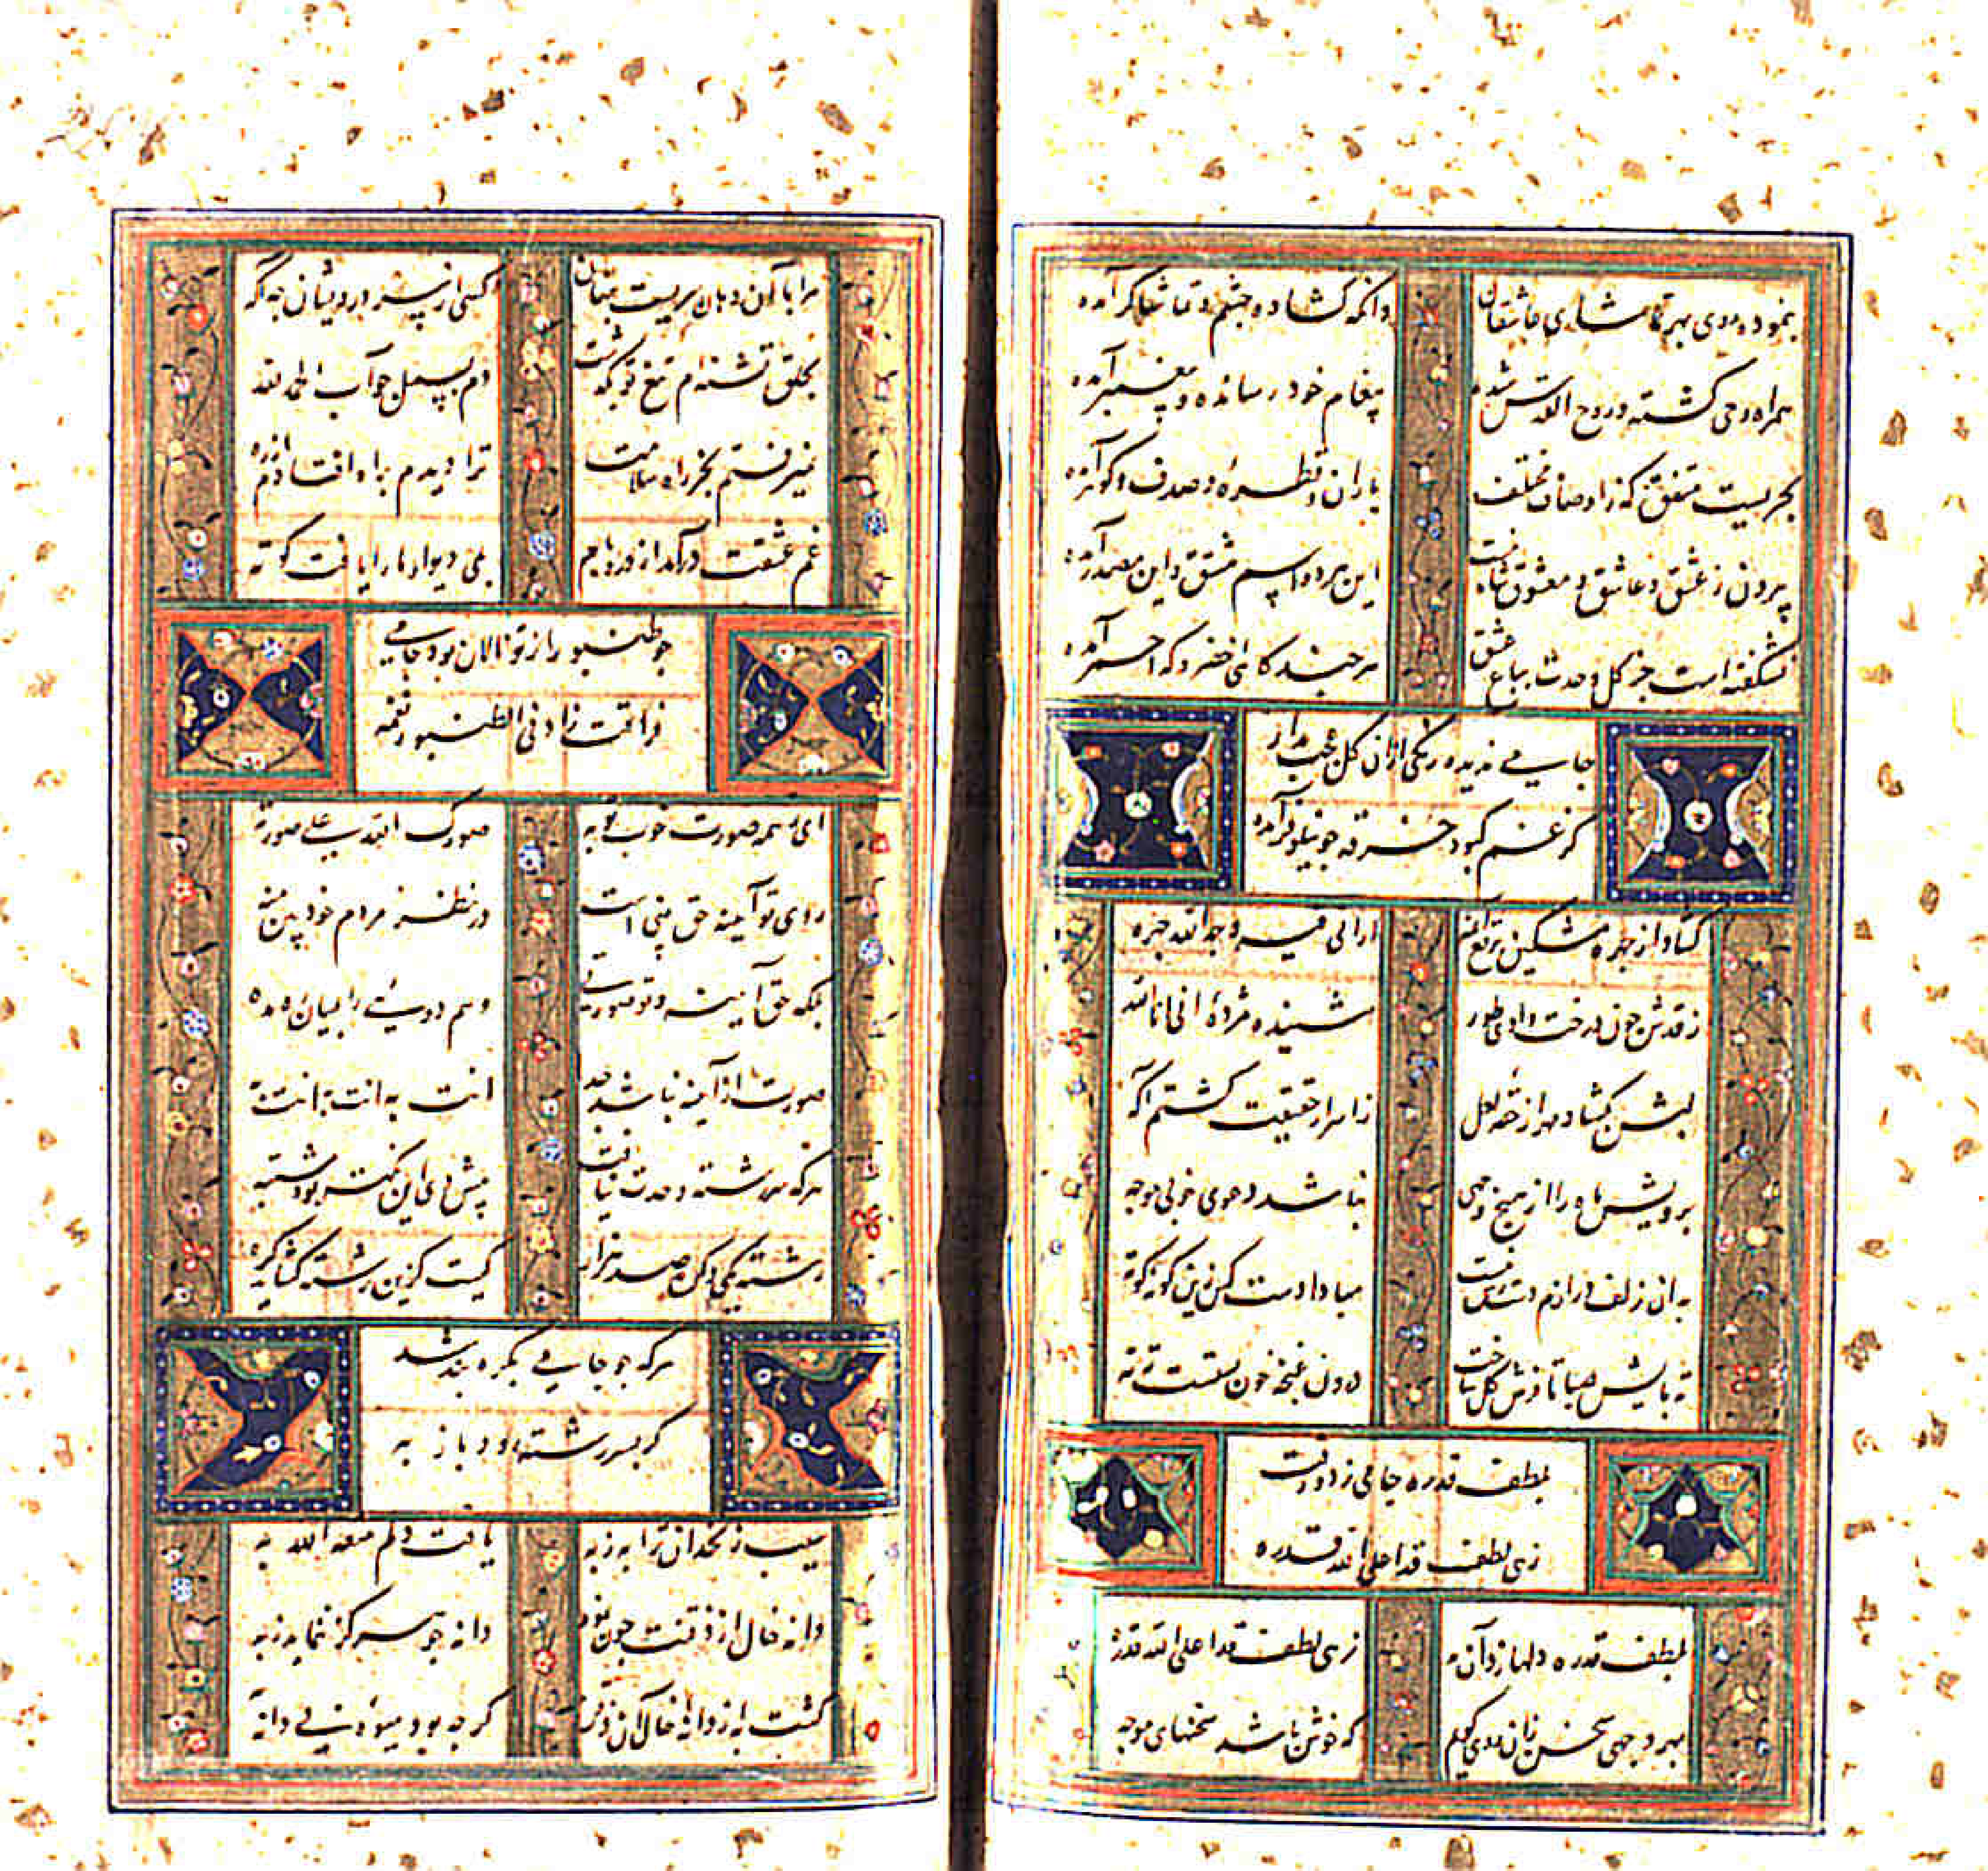 نموده روی بهر تماشای عاشقان
وانگه گشاده چشم و تماشاگر آمده
همراه وحی گشته و روح القدس شده
پیغام خود رسانده و پیغمبر آمده
بحریست متفق که ز اوصاف مختلف
باران و قطره و صدف و گوهر آمده
بیرون ز عشق و عاشق و معشوق هیچ نیست
این هر دو اسم مشتق و این مصدر آمده
نشکفته است جز گل وحدت بباغ عشق
هر چند گاه اخضر و گه احمر آمده
جامی ندیده رنگی ازان گل عجب مدار
کز غم کبود خرقه چو نیلوفر آمده
گشاد از چهره مشکین برقع آن مه
ارانی فیه وجه الله جهره
ز قدش چون درخت وادی طور
شنیده مژدهٔ انی انا الله
لبش بگشاد مهر از حقه لعل
ز اسرار حقیقت گشتم آگه
برویش ماه را از هیچ وجهی
نباشد دعوی خوبی موجه
به آن زلف درازم دسترس نیست
مبادا دست کس زین گونه کوته
ته پایش صبا تا فرش گل ساخت
درون غنچه خون بسته است ته ته
بلطف قدره جامی زد و گفت
زهی لطف قد اعلی الله قدره
بلطف قدره دلها زد آن مه
زهی لطف قد اعلی الله قدره
بهر وجهی سخن زان روی گویم
که خوش باشد سخنهای موجه
مرا با آن دهان سریست پنهان
کسی از سر درویشان چه آگه
بحلق تشنه‌ام تیغ تو بگذشت
دم بسمل چو آب الحمد لله
نمیرفتم بجز راه سلامت
ترا دیدم براه افتادم از ره
غم عشقت درآمد از در و بام
بلی دیوار ما را یافت کوته
چو طنبور از تو نالان بود جامی
فراقت زاد فی الطنبور نغمه
ای همه صورت خوب تو به
صورک الله علی صورته
روی تو آیینه حق بینی است
در نظر مردم خودبین منه
بلکه حق آیینه و تو صورتی
وهم دویی را بمیان ره مده
صورت از آیینه نباشد جدا
انت به انت به انت به
هر که سر رشته وحدت نیافت
پیش وی این نکته بود مشتبه
رشته یکی دان و گره صد هزار
کیست کزین رشته گشاید گره
هر که چو جامی بگره بند شد
گر بسر رشته رود باز به
سیب زنخدان ترا به ز به
یافت دلم متعه الله به
دانه خال از ذقنت چون نمود
دانه چو هرگز ننماید ز به
گشت به از دانهٔ خال آن ذقن
گرچه بود میوهٔ بی دانه به